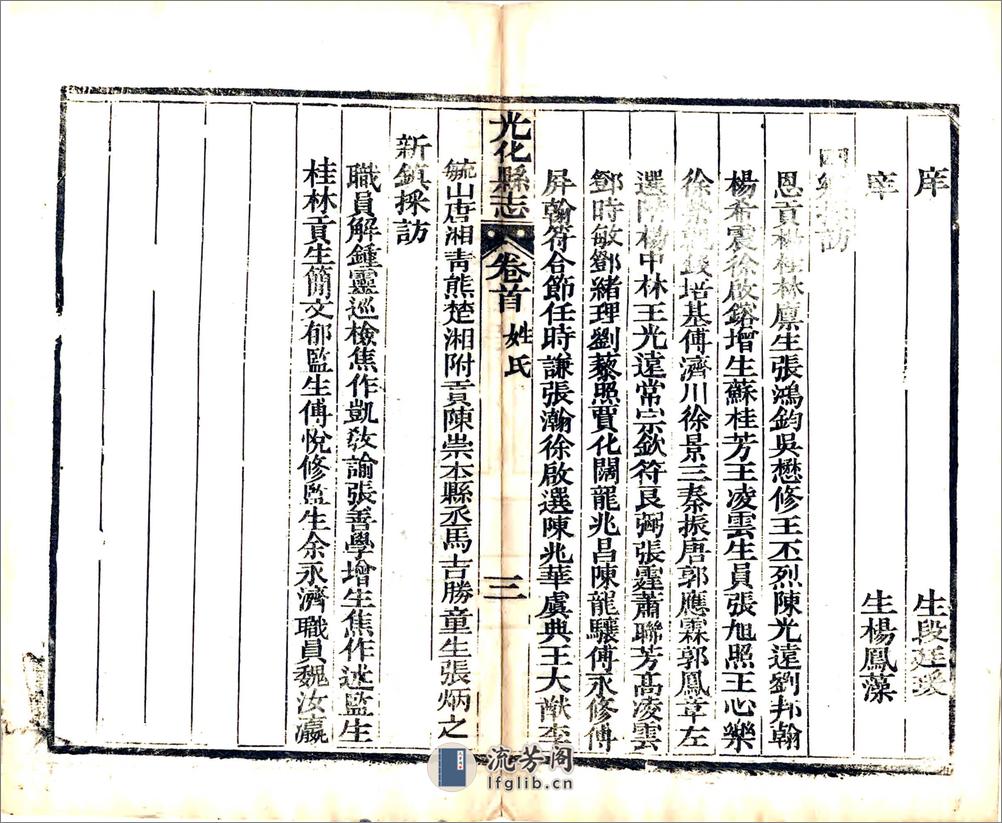 庠 生段廷瑗
庠 生楊鳳藻
四鄉採訪
恩貢楊桂林廩生張鴻鈞吳懋修王丕烈陳光遠劉邦翰
楊希震徐啟鎔增生蘇桂芳王凌雲生員張旭照王心樂
徐 錢培基傅濟川徐景三秦振唐郭應霖郭鳳章左
選 楊甲林王光遠常宗欽符良弼張霆蕭聯芳高凌雲
鄧時敏鄧緒理劉藜照賈化闊龍兆昌陳龍驤傅永修傅
屏翰符合節任時謙張瀚徐啟選陳兆華虞典王大猷李
光化縣志 卷首 姓氏 三
毓山唐湘青熊楚湘附貢陳崇本縣丞馬吉勝童生張炳之
新鎮採訪
職員解鍾靈巡檢焦作凱教諭張善學增生焦作 監生
桂林貢生簡文郁監生傅悅修監生余永濟職員魏汝瀛
流芳阁
lfglib.cn